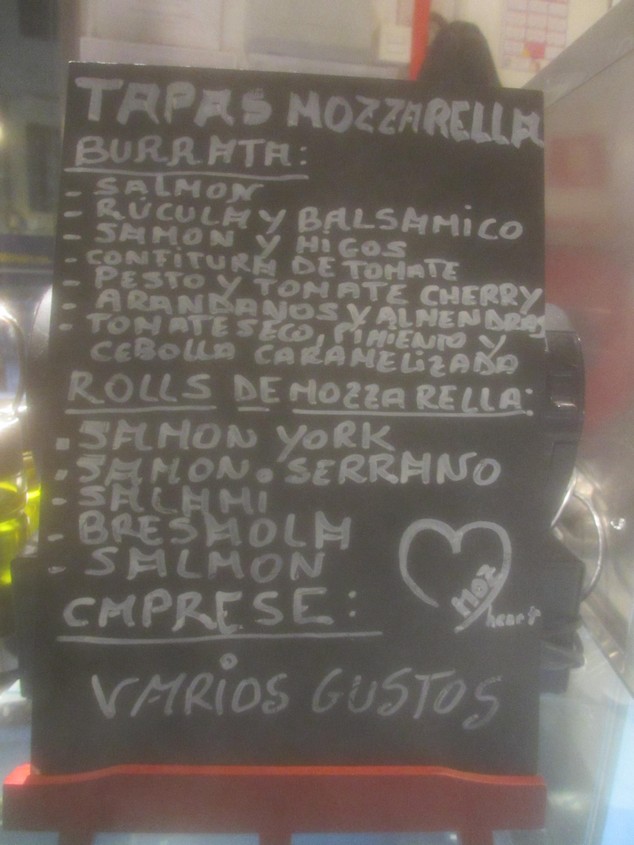 TAPAS MOZZARELLA
BURRATA:
- SALMON
- RÚCULA Y BALSAMICO
- JAMON Y HIGOS
- CONFITURA DE TOMATE
- PESTO Y TOMATE CHERRY
- ARANDANOS Y ALMENDRAS
- TOMATE SECO, PIMIENTO Y
CEBOLLA CARAMELIZADA
ROLLS DE MOZZARELLA:
- JAMON YORK
- JAMON SERRANO
- SALAMI
- BRESAOLA
- SALMON
CAPRESE:
VARIOS GUSTOS
MOZ
heart